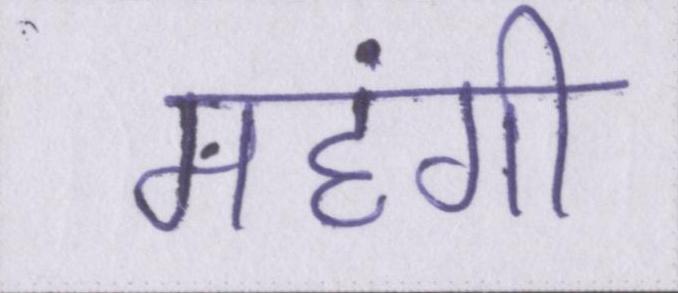 महंगी